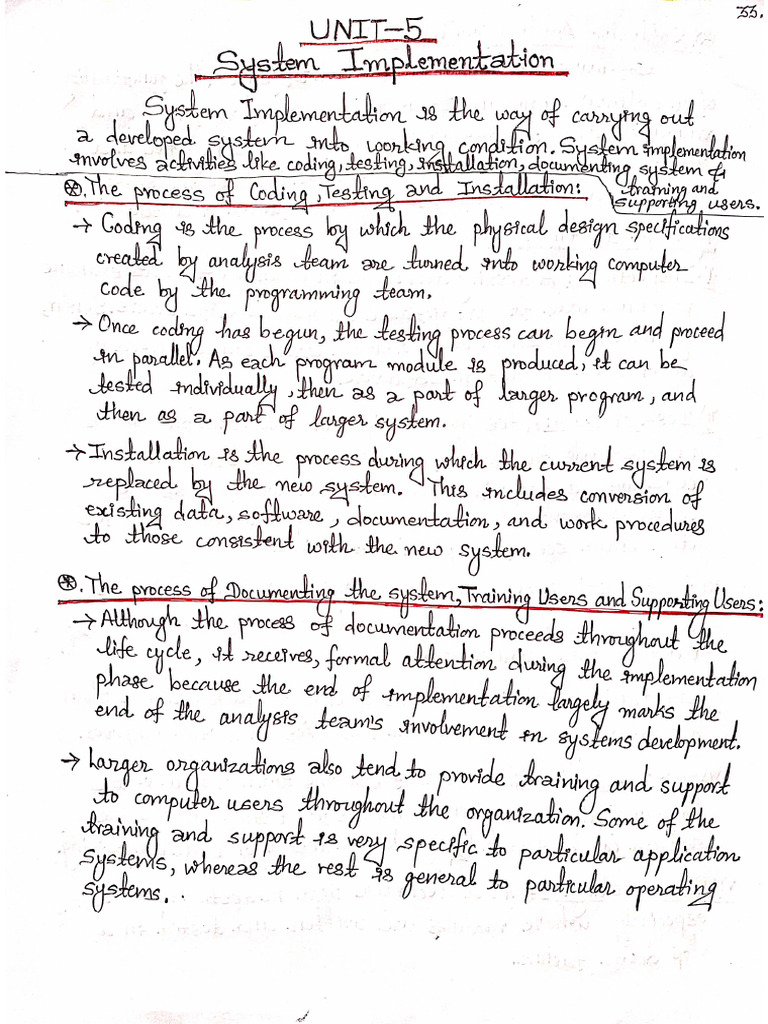 33.
UNIT-5
System Implementation
System Implementation is the way of carrying out
a developed system into working condition. System implementation
involves activities like coding, testing, installation, documenting system &
training and
supporting users.
⊛. The process of Coding, Testing and Installation:
→ Coding is the process by which the physical design specifications
created by analysis team are turned into working computer
code by the programming team.
→ Once coding has begun, the testing process can begin and proceed
in parallel. As each program module is produced, it can be
tested individually, then as a part of larger program, and
then as a part of larger system.
→ Installation is the process during which the current system is
replaced by the new system. This includes conversion of
existing data, software, documentation, and work procedures
to those consistent with the new system.
⊛. The process of Documenting the system, Training Users and Supporting Users:
→ Although the process of documentation proceeds throughout the
life cycle, it receives, formal attention during the implementation
phase because the end of implementation largely marks the
end of the analysis team's involvement in systems development.
→ Larger organizations also tend to provide training and support
to computer users throughout the organization. Some of the
training and support is very specific to particular application
systems, whereas the rest is general to particular operating
systems.